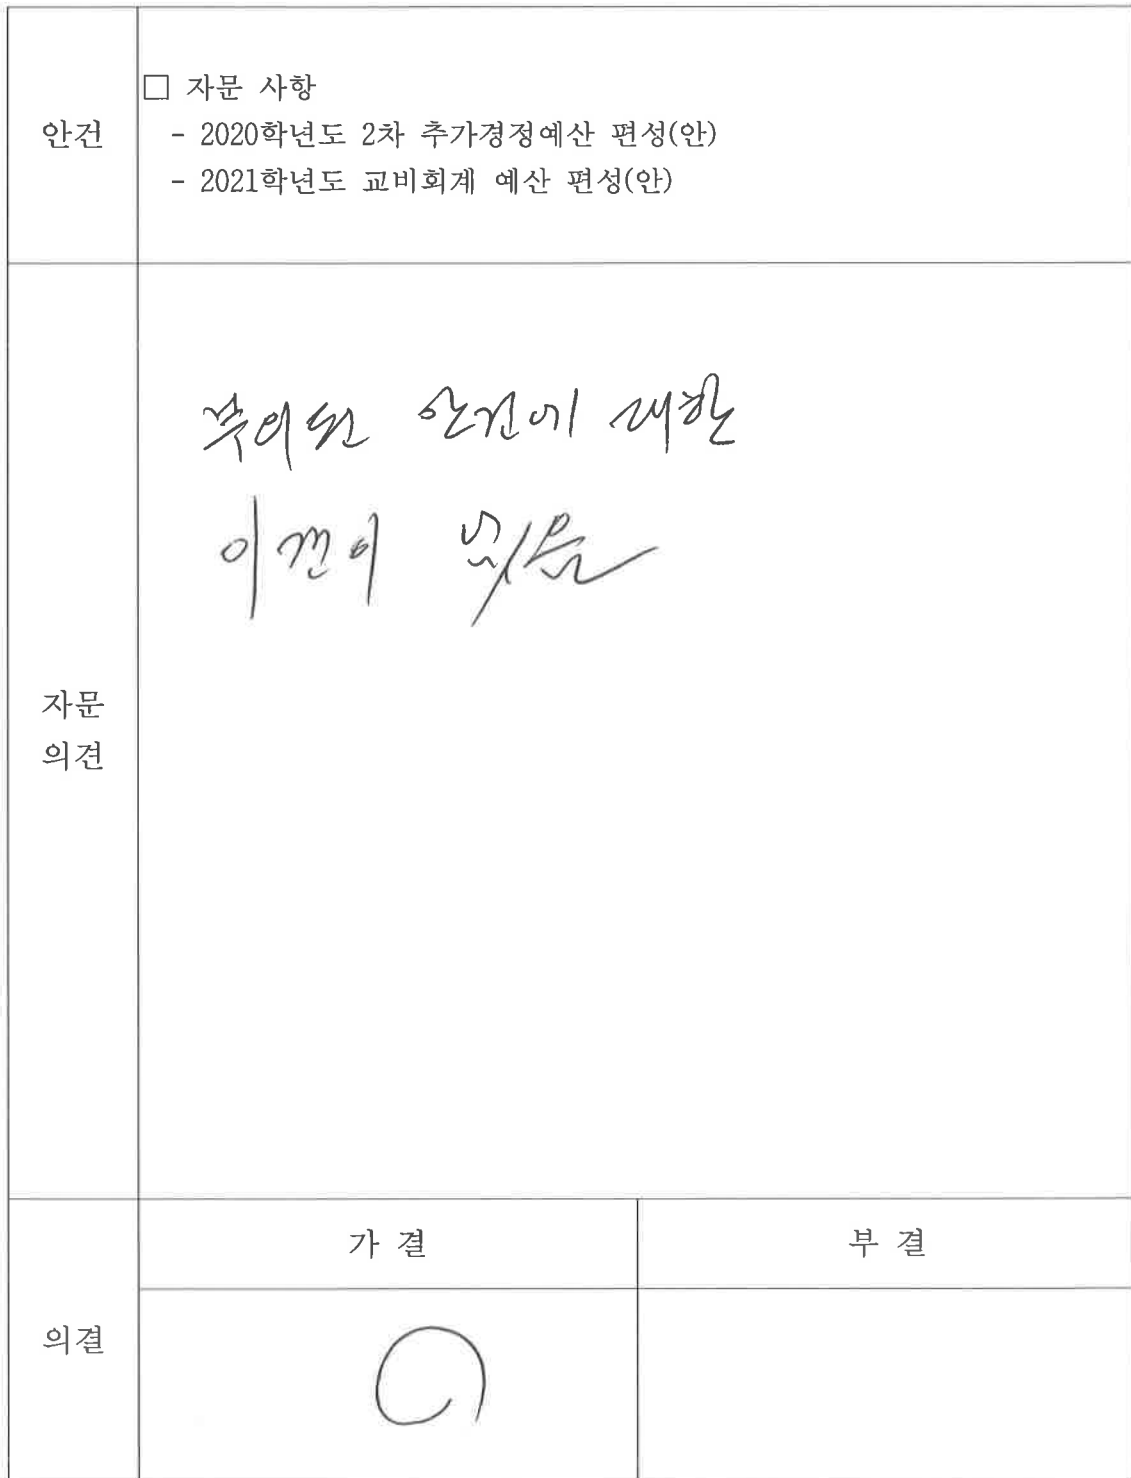 안건
□ 자문 사항
- 2020학년도 2차 추가경정예산 편성(안)
- 2021학년도 교비회계 예산 편성(안)
부의된 안건에 대한
이견이 없음
자문
의견
가 결
부 결
의결